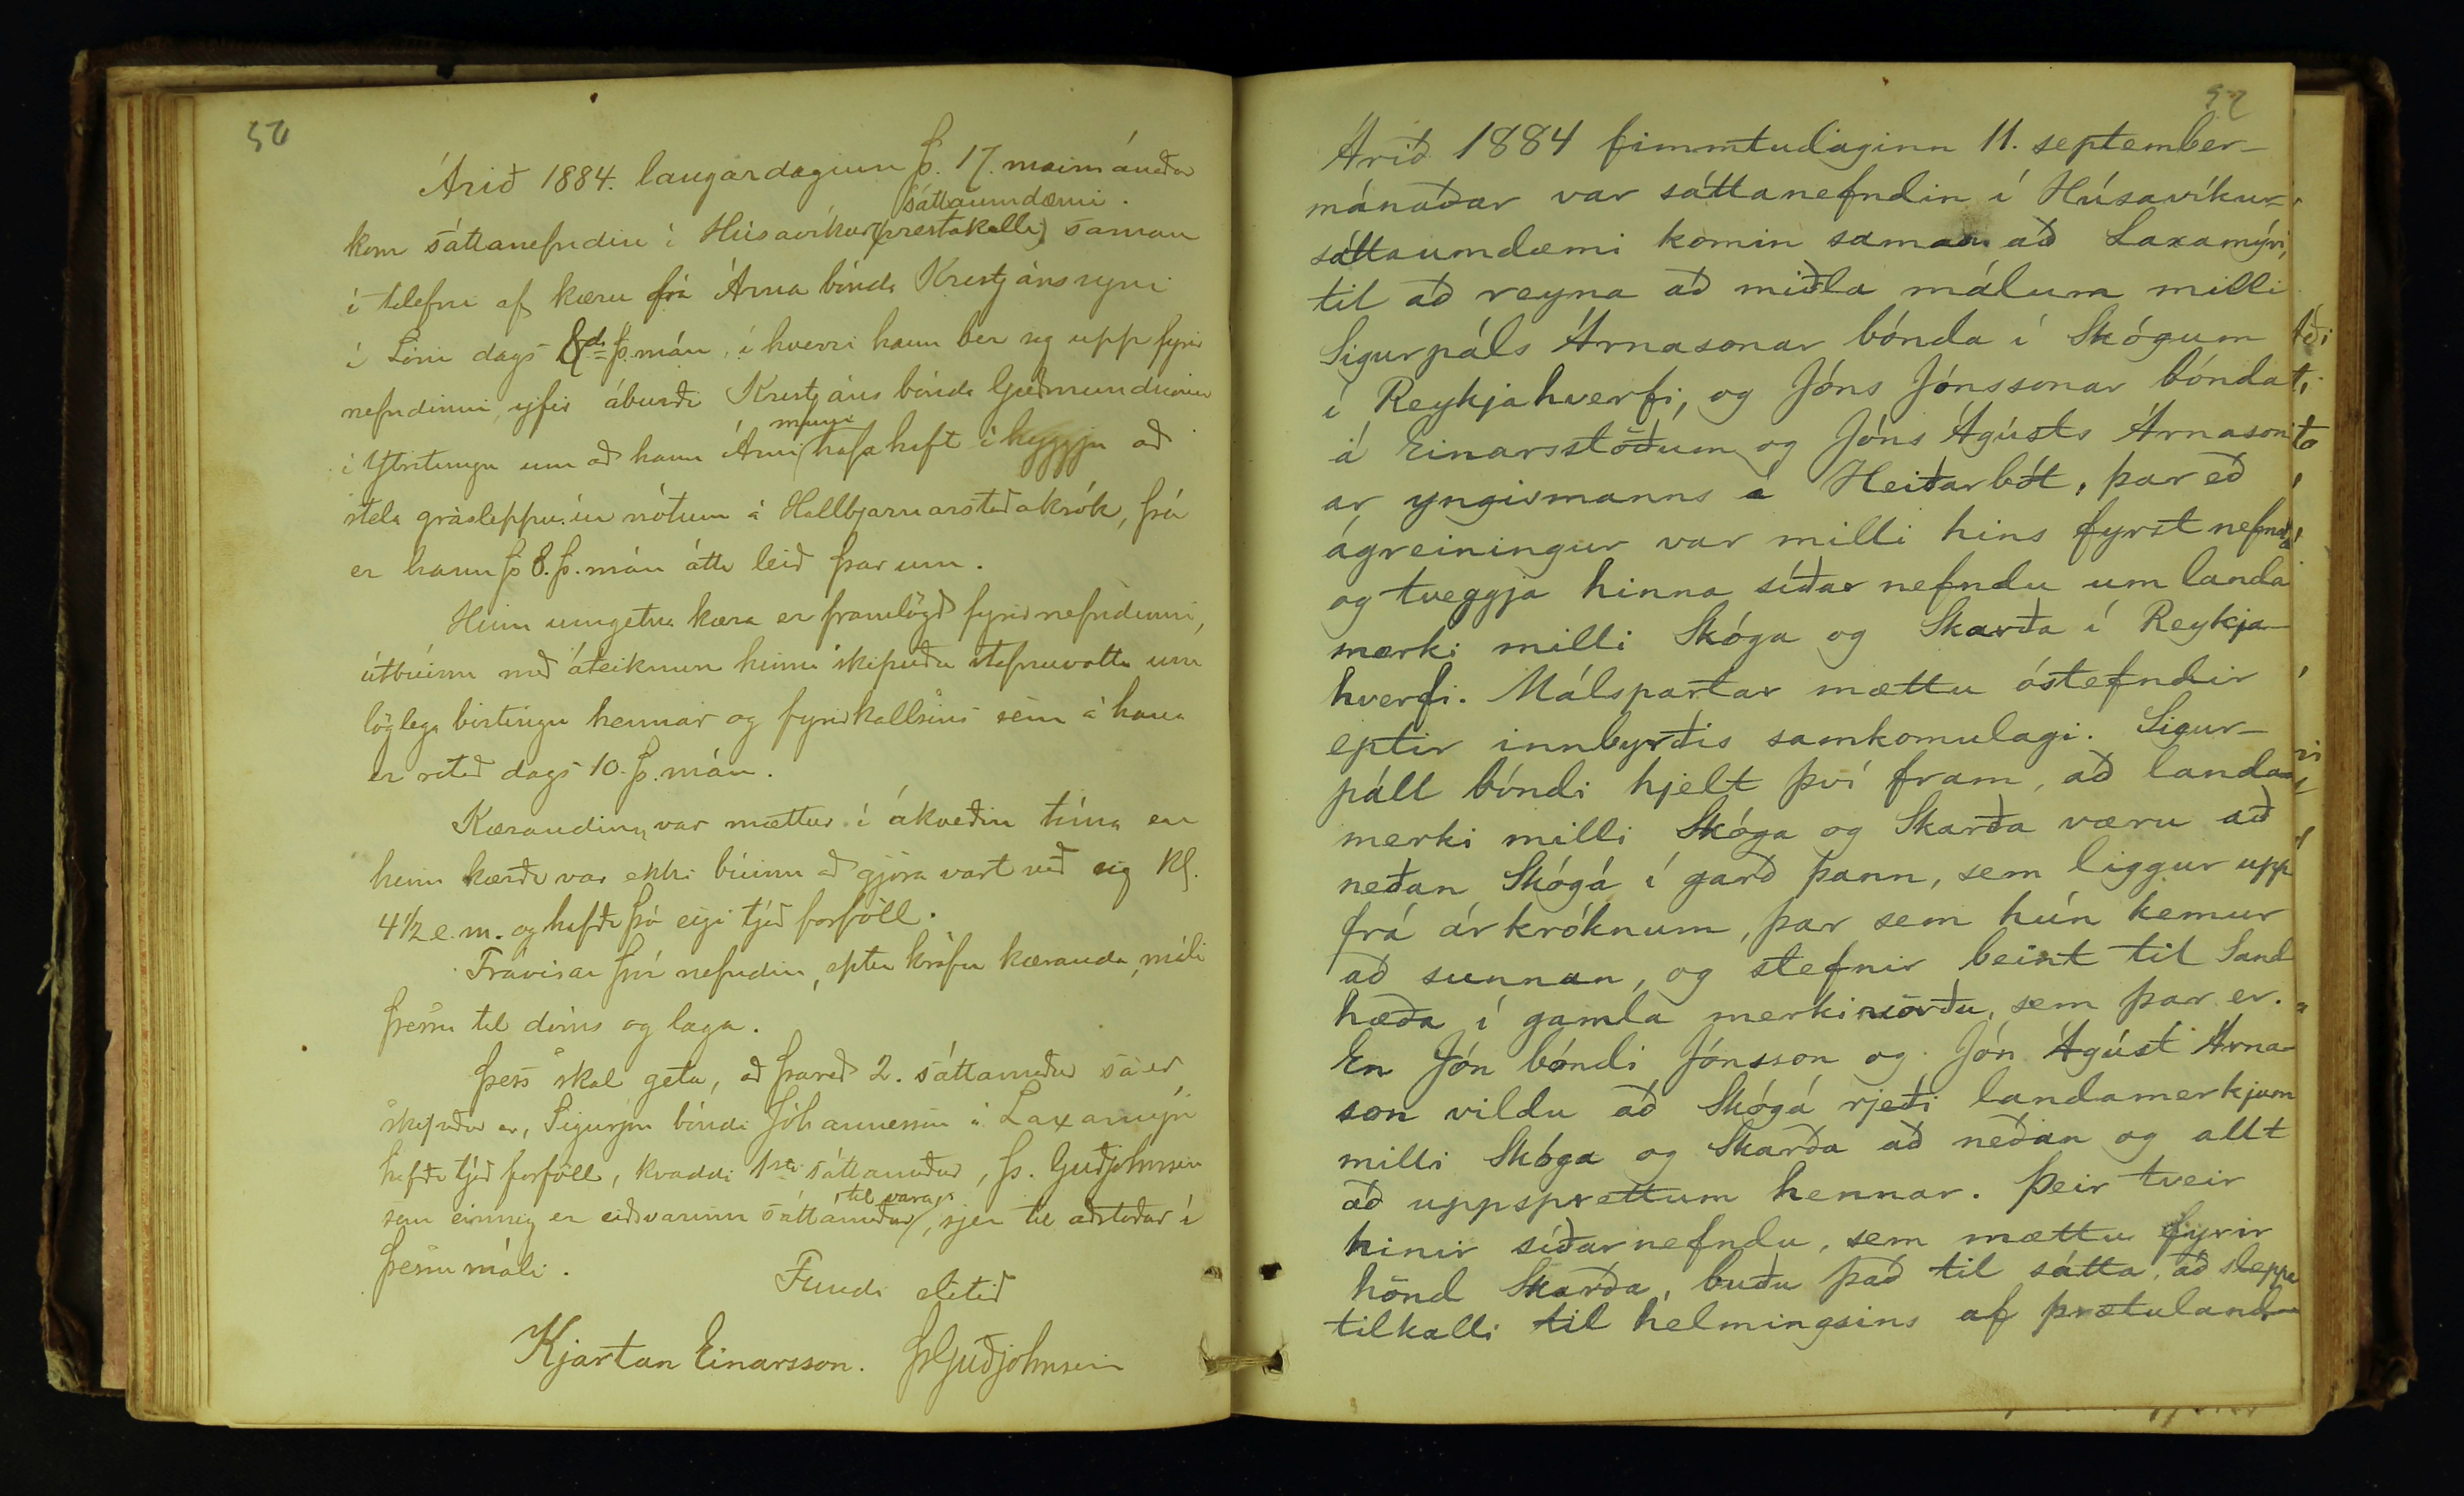 50
Árið 1884. laugardaginn þ. 17. maimánaðar
sáttaumdæmi.
kom sáttanefndin í Húsavíkur(prestakalli) saman
í tilefni af kæru frá Árna bónda Kristjánssyni
í Lóni dags 8d. þ. mán, í hverri hann ber sig upp fyrir
nefndinni, yfir áburði Kristjáns bónda Guðmundssonar
muni
í Ytritungu um að hann Árni hafa haft í hyggju að
stela grásleppu úr nótum á Hallbjarnarstaðakrók, þá
er hann þ 8. þ. mán átti leið þar um.
Hinn umgetna kæra er framlögð fyrir nefndinni,
útbúinn með áteiknun hinna skipuðu stefnuvotta um
löglega birtingu hennar og fyrirkallsins sem á hana
er ritað dags 10. þ. mán.
Kærandinn var mættur í ákveðinn tíma en
hinn kærði var ekki búinn að gjöra vart við sig Kl.
4 1/2 e. m. og hafði þó eigi tjáð forföll.
Frávísar því nefndin, eptir kröfu kæranda, máli
þessu til dóms og laga.
Þess skal geta, að þareð 2. sáttamaður sá er
skipaður er, Sigurjón bóndi Jóhannesson á Laxamýri
hafði tjáð forföll, kvaddi 1sti sáttamaður, Þ. Guðjohnsen
til vara,
sem einnig er eiðsvarinn sáttamaður, sjer til aðstoðar í
þessu máli.
Fundi slitið
Kjartan Einarsson. ÞGuðjohnsen
52
Árið 1884 fimmtudaginn 11. september-
mánaðar var sáttanefndin í Húsavíkur-
sáttaumdæmi komin saman að Laxamýri,
til að reyna að miðla málum milli
Sigurpáls Árnasonar bónda í Skógum
í Reykjahverfi, og Jóns Jónssonar bónda
á Einarsstöðum og Jóns Ágústs Árnason
ar yngismanns á Heiðarbót, þar eð
ágreiningur var milli hins fyrstnefnda
og tveggja hinna síðar nefndu um landa
merki milli Skóga og Skarða í Reykja-
hverfi. Málspartar mættu óstefndir
eptir innbyrðis samkomulagi. Sigur-
páll bóndi hjelt því fram, að landa-
merki milli Skóga og Skarða væru að
neðan Skógá í garð þann, sem liggur upp
frá árkróknum, þar sem hún kemur
að sunnan, og stefnir beint til Sand
hæða í gamla merkivörðu, sem þar er.
En Jón bóndi Jónsson og Jón Ágúst Árna-
son vildu að Skógá rjeði landamerkjum
milli Skóga og Skarða að neðan og allt
að uppsprettum hennar. Þeir tveir
hinir síðarnefndu, sem mættu fyrir
hönd Skarða, buðu það til sátta, að sleppa
tilkalli til helmingsins af þrætuland-